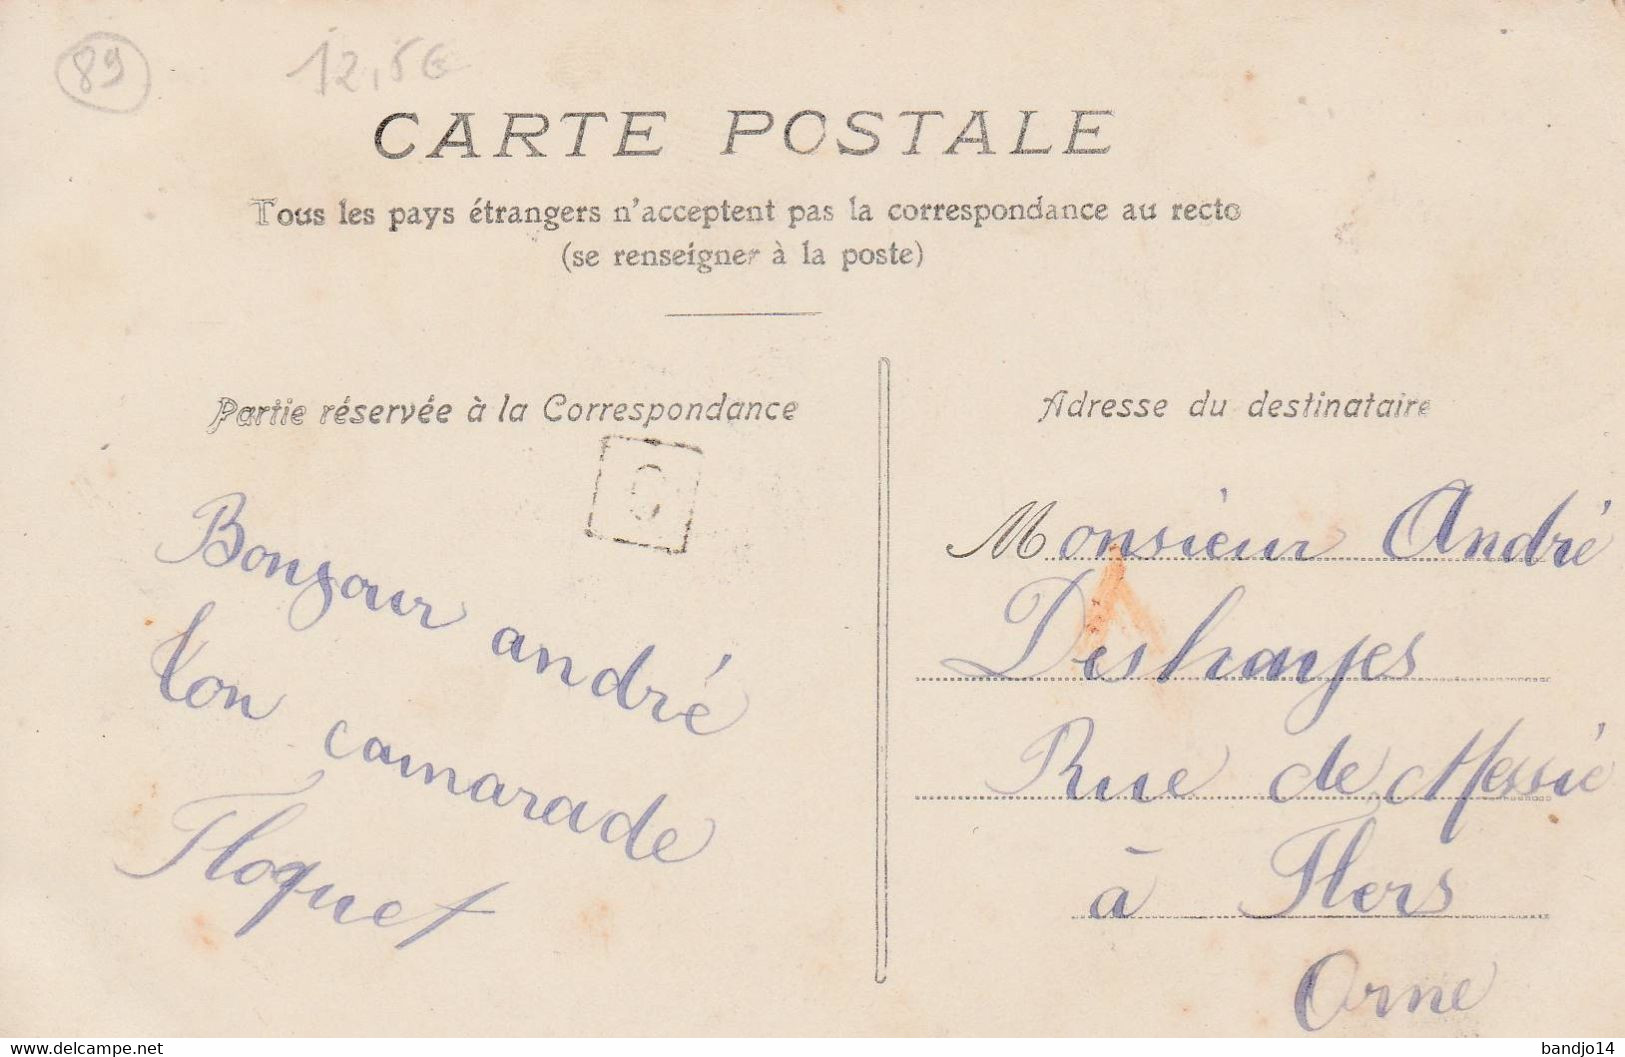 89
12,5€
CARTE POSTALE
Tous les pays étrangers n'acceptent pas la correspondance au recto
(se renseigner à la poste)
Partie réservée à la Correspondance
Bonjour andré
ton camarade
Floquet
Adresse du destinataire
Monsieur André
Deshayes
Rue de Messié
à Flers
Orne
www.delcampe.net
bandjo14